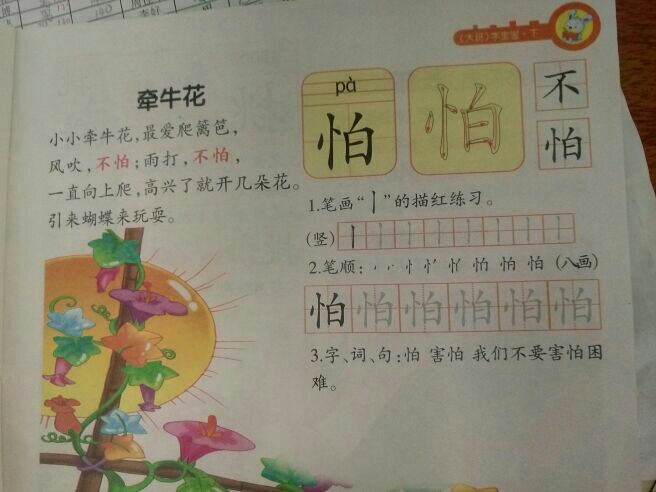 (大班)字宝宝·下
牵牛花
小小牵牛花,最爱爬篱笆,
风吹,不怕;雨打,不怕,
一直向上爬,高兴了就开几朵花。
引来蝴蝶来玩耍。
pà
怕
怕
不
怕
1.笔画“丨”的描红练习。
(竖) 丨 丨 丨 丨 丨 丨 丨 丨
2.笔顺: 怕 怕 (八画)
怕 怕 怕 怕 怕 怕
3.字、词、句:怕 害怕 我们不要害怕困
难。